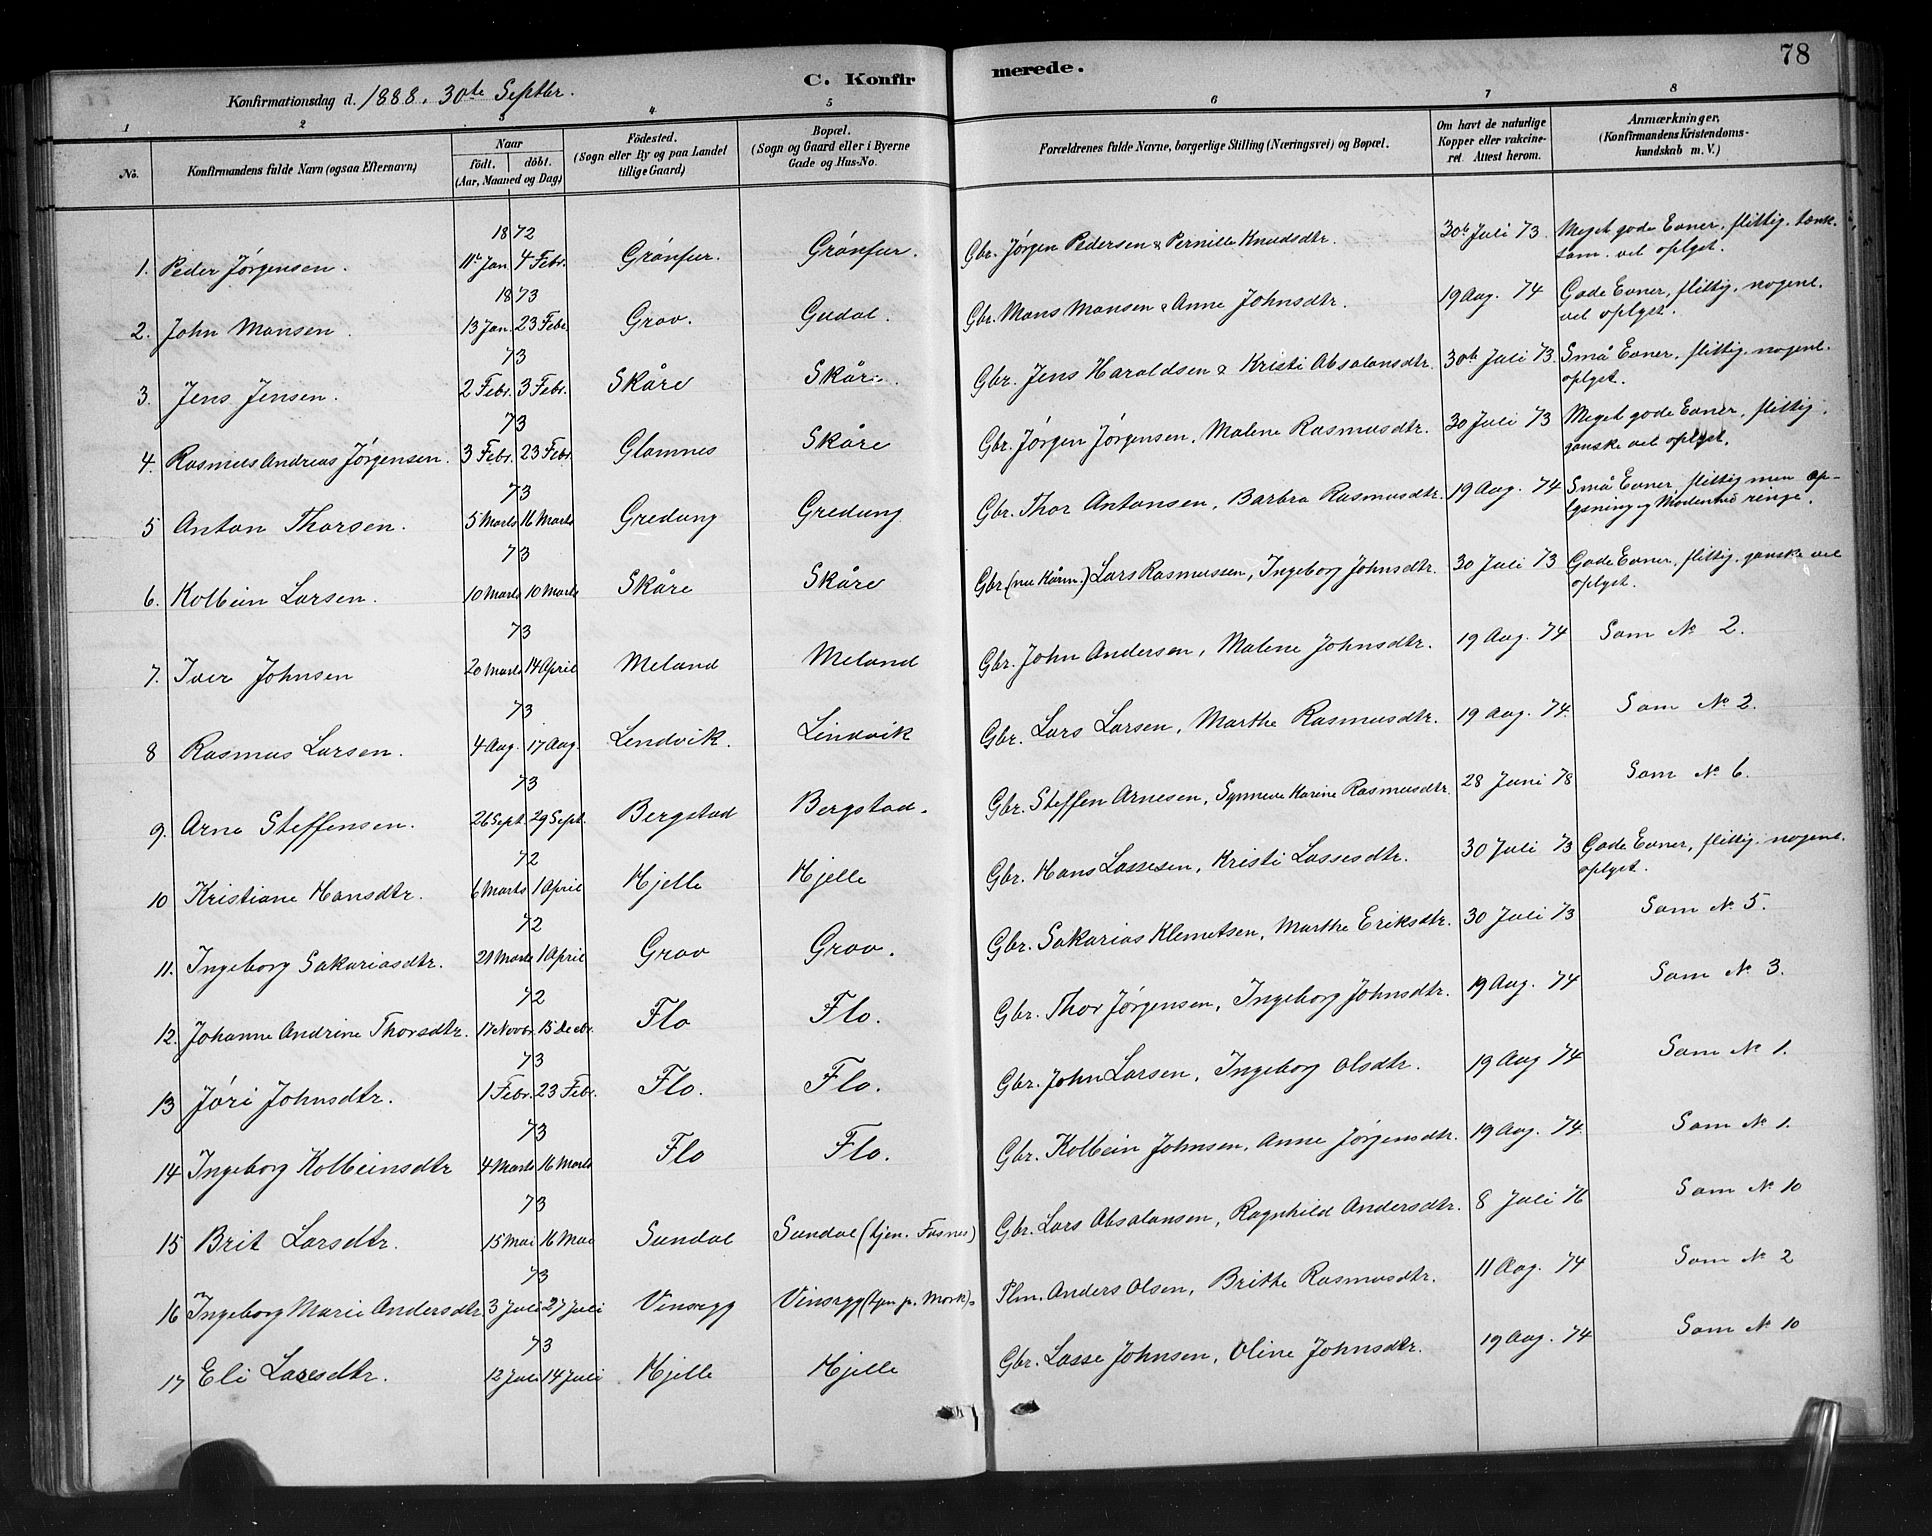 78
C. Konfirmerede.
Konfirmationsdag d. 1888. 30te Septbr.
1 2 3 4 5 6 7 8
No. Konfirmandens fulde Navn (ogsaa Efternavn) Naar födt. döbt. (Aar, Maaned og Dag) Födested. (Sogn eller By og paa Landet tillige Gaard) Bopæl. (Sogn og Gaard eller i Byerne Gade og Hus-No. Forældrenes fulde Navne, borgerlige Stilling (Næringsvei) og Bopæl. Om havt de naturlige Kopper eller vakcineret. Attest herom. Anmærkninger, (Konfirmandens Kristendomskundskab m. V.)
1872
1. Peder Jørgensen. 11te Jan. 4 Febr. Grönfur. Grönfur. Gbr. Jørgen Pedersen & Pernille Knudsdtr. 30te Juli 73. Meget gode Evner, flittig, tænksam. vel oplyst.
1873
2. John Monsen. 13 Jan. 23 Febr. Grov. Gudal. Gbr. Mons Monsen & Anne Johnsdtr. 19 Aug. 74 Gode Evner, flittig, nogenl. vel oplyst.
73
3. Jens Jensen. 2 Febr. 3 Febr. Skåre Skåre. Gbr. Jens Haraldsen & Kristi Absalonsdtr. 30te Juli 73. Små Evner, flittig. nogenl. oplyst.
73
4. Rasmus Andreas Jørgensen. 3 Febr. 23 Febr. Glomnes Skåre Gbr. Jørgen Jørgensen, Malene Rasmusdtr. 30 Juli 73 Meget gode Evner, flittig, ganske vel oplyst.
73
5 Anton Thorsen. 5 Marts 16 Marts Gredung Gredung Gbr. Thor Antonsen, Barbra Rasmusdtr. 19 Aug. 74 Små Evner, flittig men oplysning og Modenhed ringe.
73
6. Kolbein Larsen. 10 Marts 10 Marts Skåre Skåre Gbr. (nu Kårm.) Lars Rasmussen, Ingeborg Johnsdtr. 30 Juli 73 Gode Evner, flittig. ganske vel oplyst.
73
7. Iver Johnsen 20 Marts 14 April Meland Meland Gbr. John Andersen, Malene Johnsdtr. 19 Aug. 74 Som No 2.
73
8 Rasmus Larsen. 4 Aug. 17 Aug. Lindvik. Lindvik Gbr. Lars Larsen, Marthe Rasmusdtr. 19 Aug. 74. Som No 2.
73
9. Arne Steffensen. 26 Sept. 29 Sept. Bergstad Bergstad. Gbr. Steffen Arnesen, Synneve Karine Rasmusdtr. 28 Juni 78 Som No 6.
72
10 Kristiane Hansdtr. 6 Marts 1 April Hjelle Hjelle Gbr. Hans Lassesen, Kristi Lassesdtr. 30 Juli 73 Gode Evner, flittig. nogenl. oplyst.
72
11. Ingeborg Sakariasdtr. 21 Marts 1 April Grov Grov. Gbr. Sakarias Klemetsen, Marthe Eriksdtr. 30 Juli 73 Som No 5.
72
12. Johanne Andrine Thorsdtr. 17 Novbr. 15 Decbr. Flo Flo. Gbr. Thor Jørgensen, Ingeborg Johnsdtr. 19 Aug. 74 Som No 3.
73
13 Jøri Johnsdtr. 1 Febr. 23 Febr. Flo. Flo. Gbr. John Larsen, Ingeborg Olsdtr. 19 Aug 74 Som No 1.
73
14 Ingeborg Kolbeinsdtr 4 Marts 16 Marts Flo Flo. Gbr. Kolbein Johnsen, Anne Jørgensdtr. 19 Aug. 74. Som No 1.
73
15 Brit Larsdtr. 15 Mai 16 Mai Sundal Sundal (tjen. Fosnes) Gbr. Lars Absalonsen, Ragnhild Andersdtr. 8 Juli 76 Som No 10
73
16 Ingeborg Marie Andersdtr. 3 Juli 27 Juli Vinsrygg Vinsrygg (tjen. p. Mork). Plm. Anders Olsen, Brithe Rasmusdtr. 11 Aug. 74 Som No 2
73
17 Eli Lassesdtr. 12 Juli 14 Juli Hjelle Hjelle Gbr. Lasse Johnsen, Oline Johnsdtr. 19 Aug. 74 Som No 10